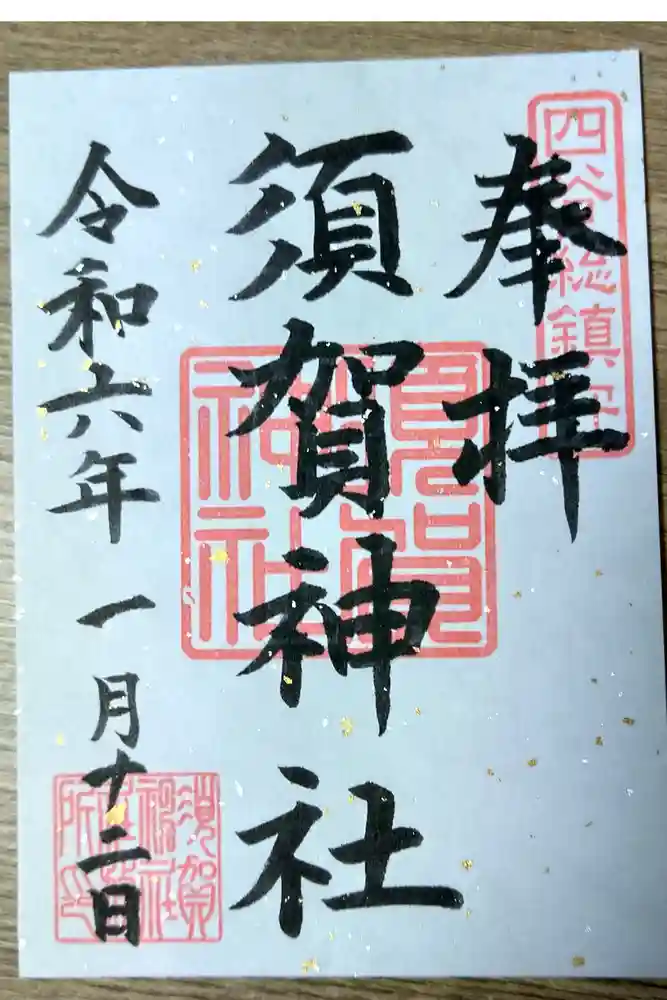 四谷総鎮守
奉拝
須賀神社
須賀神社
令和六年 一月十二日
須賀神社社務所印